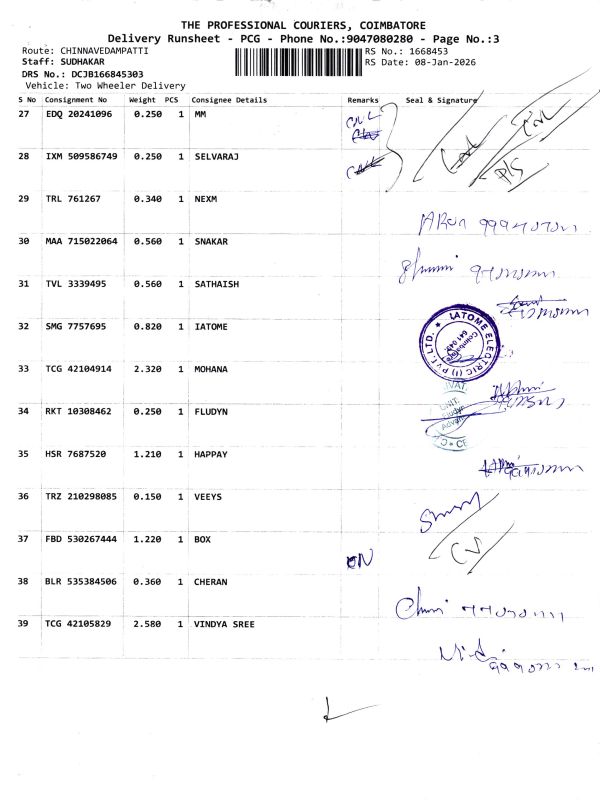 THE PROFESSIONAL COURIERS, COIMBATORE
Delivery Runsheet - PCG - Phone No.:9047080280 - Page No.:3
Route: CHINNAVEDAMPATTI RS No.: 1668453
Staff: SUDHAKAR RS Date: 08-Jan-2026
DRS No.: DCJB166845303
Vehicle: Two Wheeler Delivery
S No Consignment No Weight PCS Consignee Details Remarks Seal & Signature
27 EDQ 20241096 0.250 1 MM
28 IXM 509586749 0.250 1 SELVARAJ
29 TRL 761267 0.340 1 NEXM
30 MAA 715022064 0.560 1 SNAKAR
31 TVL 3339495 0.560 1 SATHAISH
32 SMG 7757695 0.820 1 IATOME
IATOME ELECTRIC (I) PVT. LTD.
33 TCG 42104914 2.320 1 MOHANA
34 RKT 10308462 0.250 1 FLUDYN
35 HSR 7687520 1.210 1 HAPPAY
36 TRZ 210298085 0.150 1 VEEYS
37 FBD 530267444 1.220 1 BOX
ON
38 BLR 535384506 0.360 1 CHERAN
39 TCG 42105829 2.580 1 VINDYA SREE